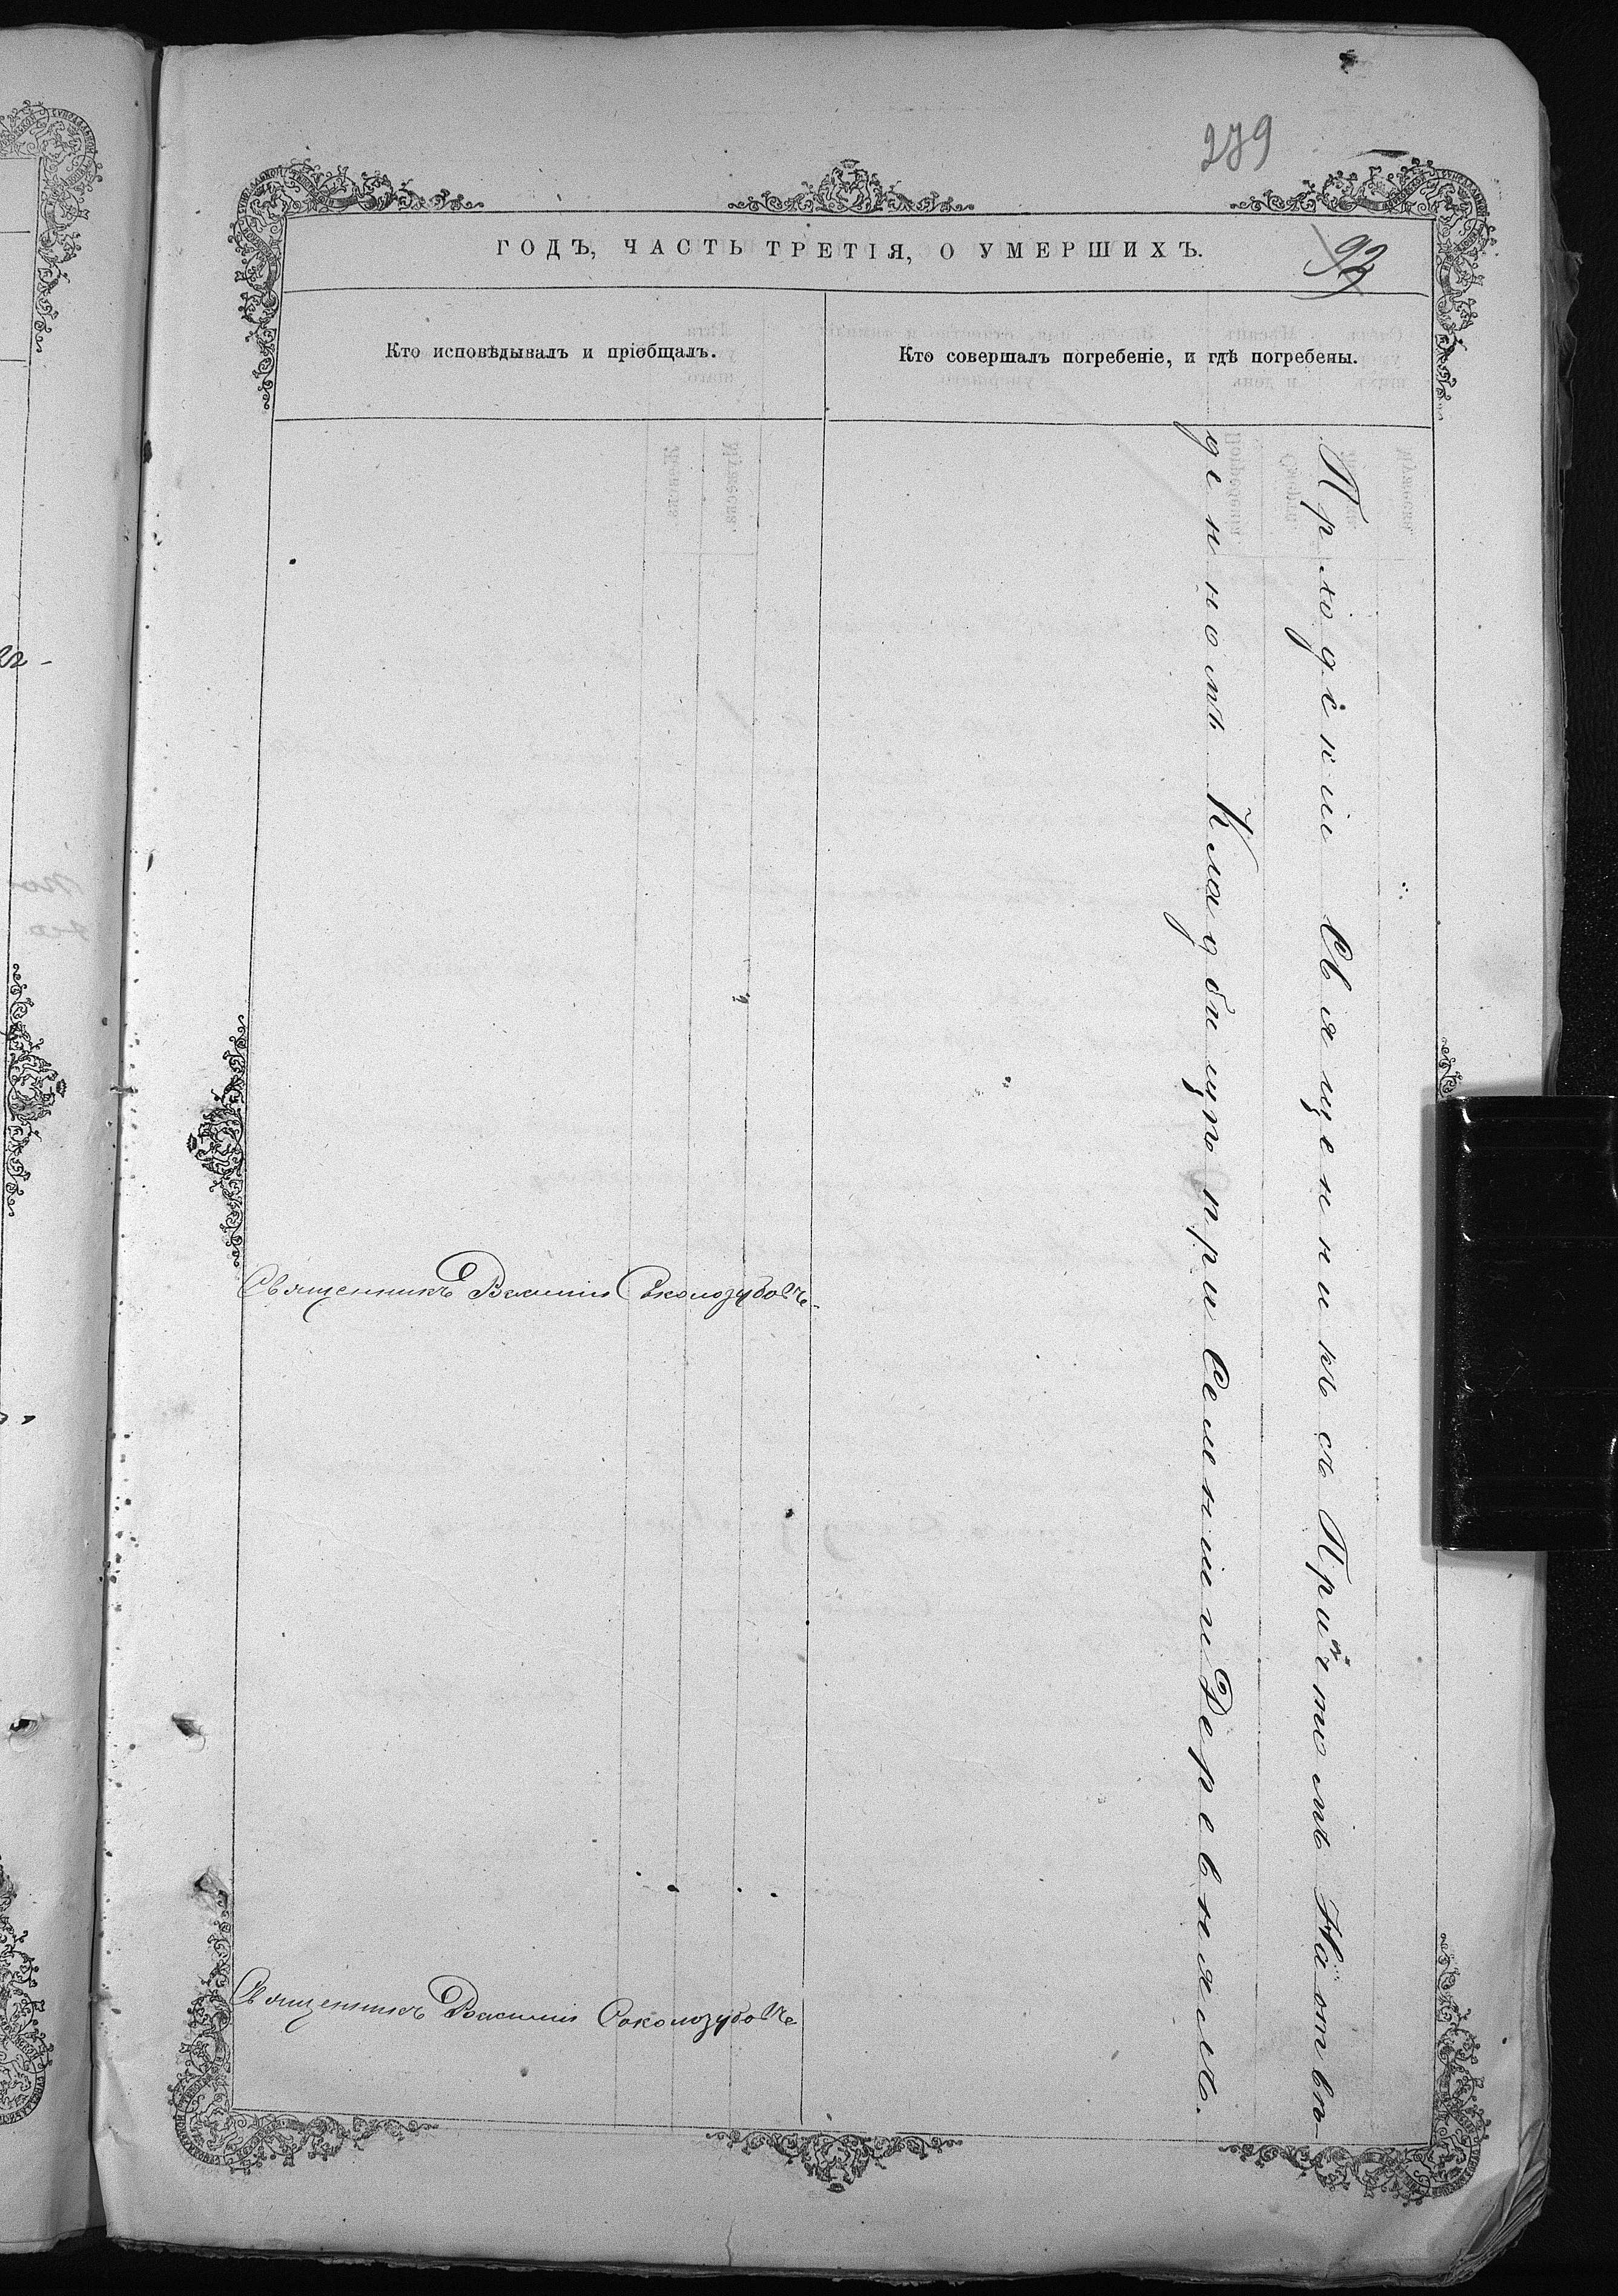 279
ГОДЪ, ЧАСТЬ ТРЕТІЯ, О УМЕРШИХЪ.
Кто исповѣдывалъ и пріобщалъ.
Кто совершалъ погребеніе, и гдѣ погребены.
Священникъ Василій
Священникъ Василій
Прходскій Священникъ съ Причтомъ На отве-
денномъ Кладбищѣ при Селеніи и Деревняхъ.